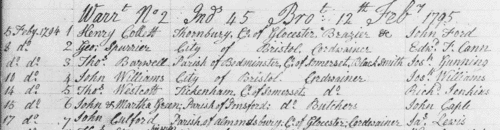 Warrt. No. 2 Ind 45 Brot. 12th Feby. 1795
5 Feby. 1794 1 Henry Collett Thornbury, C. of Glocester Brazier & John Ford
8 do. 2 Geo. Spurrier City of Bristol, Cordwainer Edwd. T. Cann
do. do. 3 Thos. Barwell Parish of Bedminster, C. of Somerset, Black Smith Jos. Gunning
10 do. 4 John Williams City of Bristol Cordwainer Jos. Williams
14 do. 5 Thos. Westcott Tickenham, C. of Somerset, do. Richd. Jenkins
15 do. 6 John & Martha Green; Parish of do. Butchers John Caple
17 do. 7 John Parish of Almondsbury C. of Glocester; Cordwainer Jas. Lewis